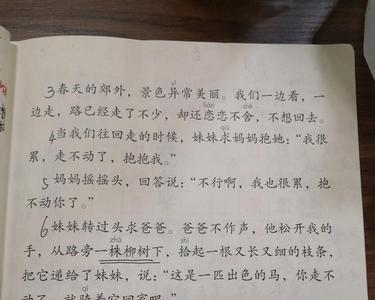 yì
3 春天的郊外，景色异常美丽。我们一边看，一
liàn shě
边走，路已经走了不少，却还恋恋不舍，不想回去。
qiú
4 当我们往回走的时候，妹妹求妈妈抱她：“我很
累，走不动了，抱抱我。”
5 妈妈摇摇头，回答说：“不行啊，我也很累，抱
不动你了。”
6 妹妹转过头求爸爸。爸爸不作声，他松开我的
zhū shí
手，从路旁一株柳树下，拾起一根又长又细的枝条，
把它递给了妹妹，说：“这是一匹出色的马，你走不
qí
动了，就骑着它回家吧。”